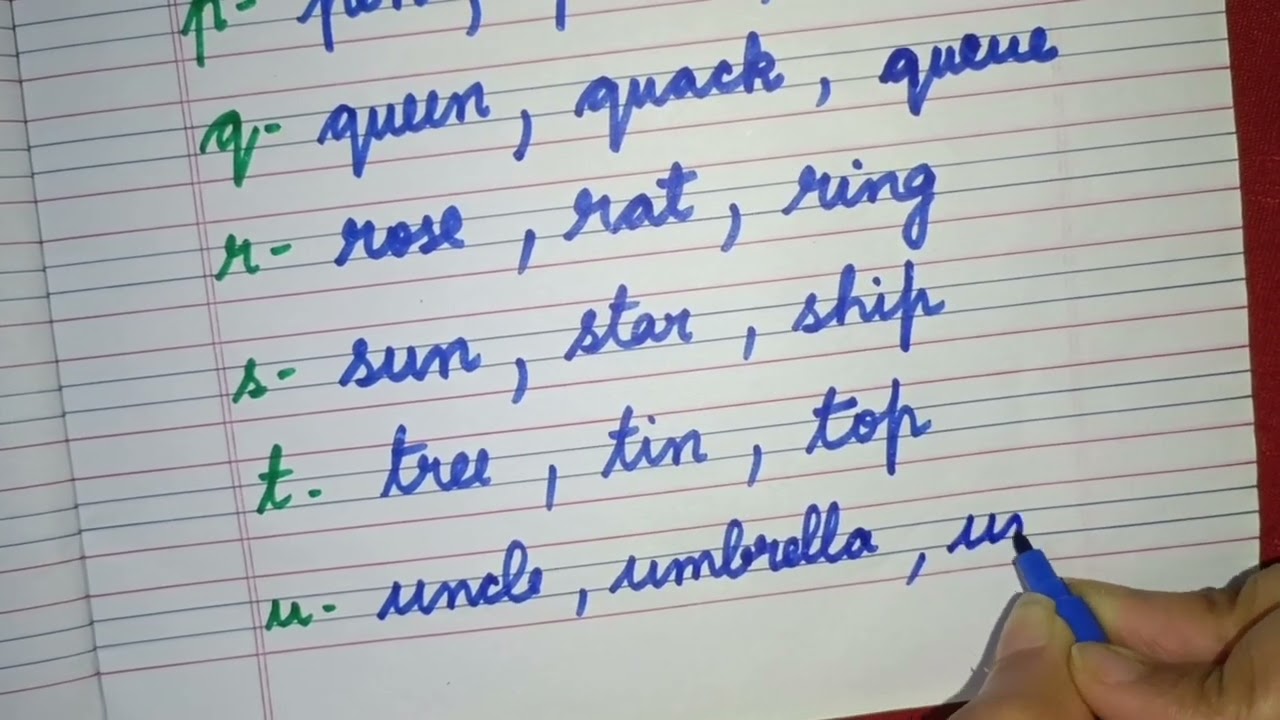 q- queen, quack, queue
r- rose, rat, ring
s- sun, star, ship
t- tree, tin, top
u- uncle, umbrella,